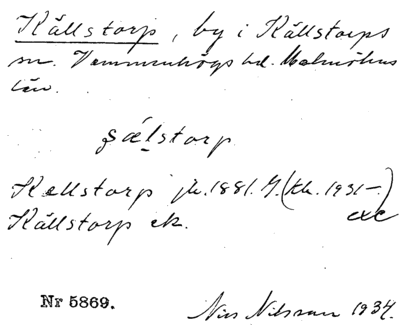 Källstorp, by i Källstorps
sn. Vemmenhögs hd. Malmöhus
län.
Kellstorp jb. 1881. G. (tk. 1931–)
Källstorp ek.
Nr 5869.
Nils Nilsson 1934.